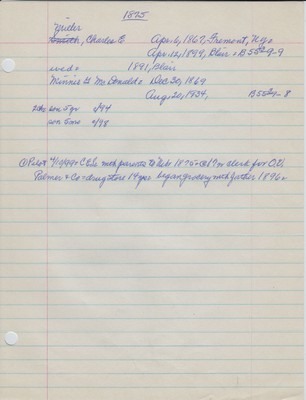 1825
Grider
Smith, Charles E Apr 6, 1867, Fremont, N.Y.
Apr 12, 1899, Blair B 5529-9
wed 1891, Blair
Minnie H McDonald Dec 30, 1869
Aug 20, 1934, B 5529-8
2 chs son 5 yr 4/94
son 5 mo 4/98
@ Pilot 4/19/99 C E G with parents to Nebr 1875 @ 19 clerk for O.V.
Palmer & Co drug store 14 yrs began grocery with father 1896